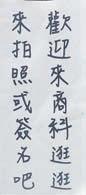 歡迎來商科逛逛
來拍照或簽名吧